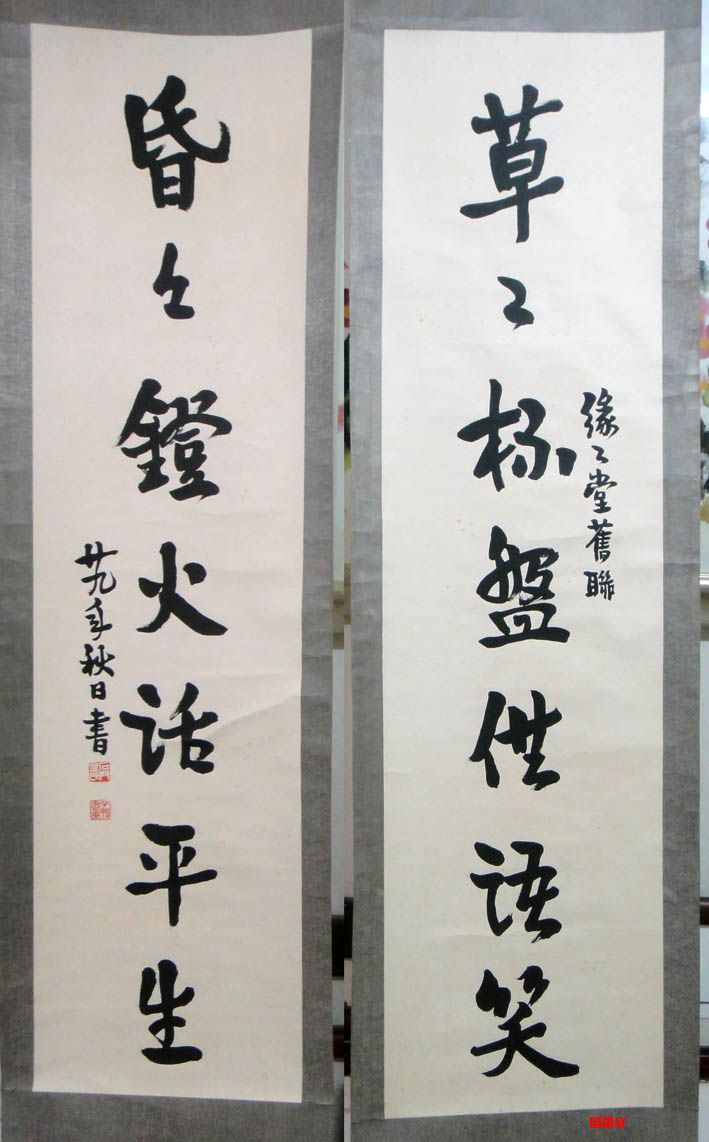 草々杯盤供語笑
緣々堂舊聯
昏々鐙火話平生
廿九年秋日書